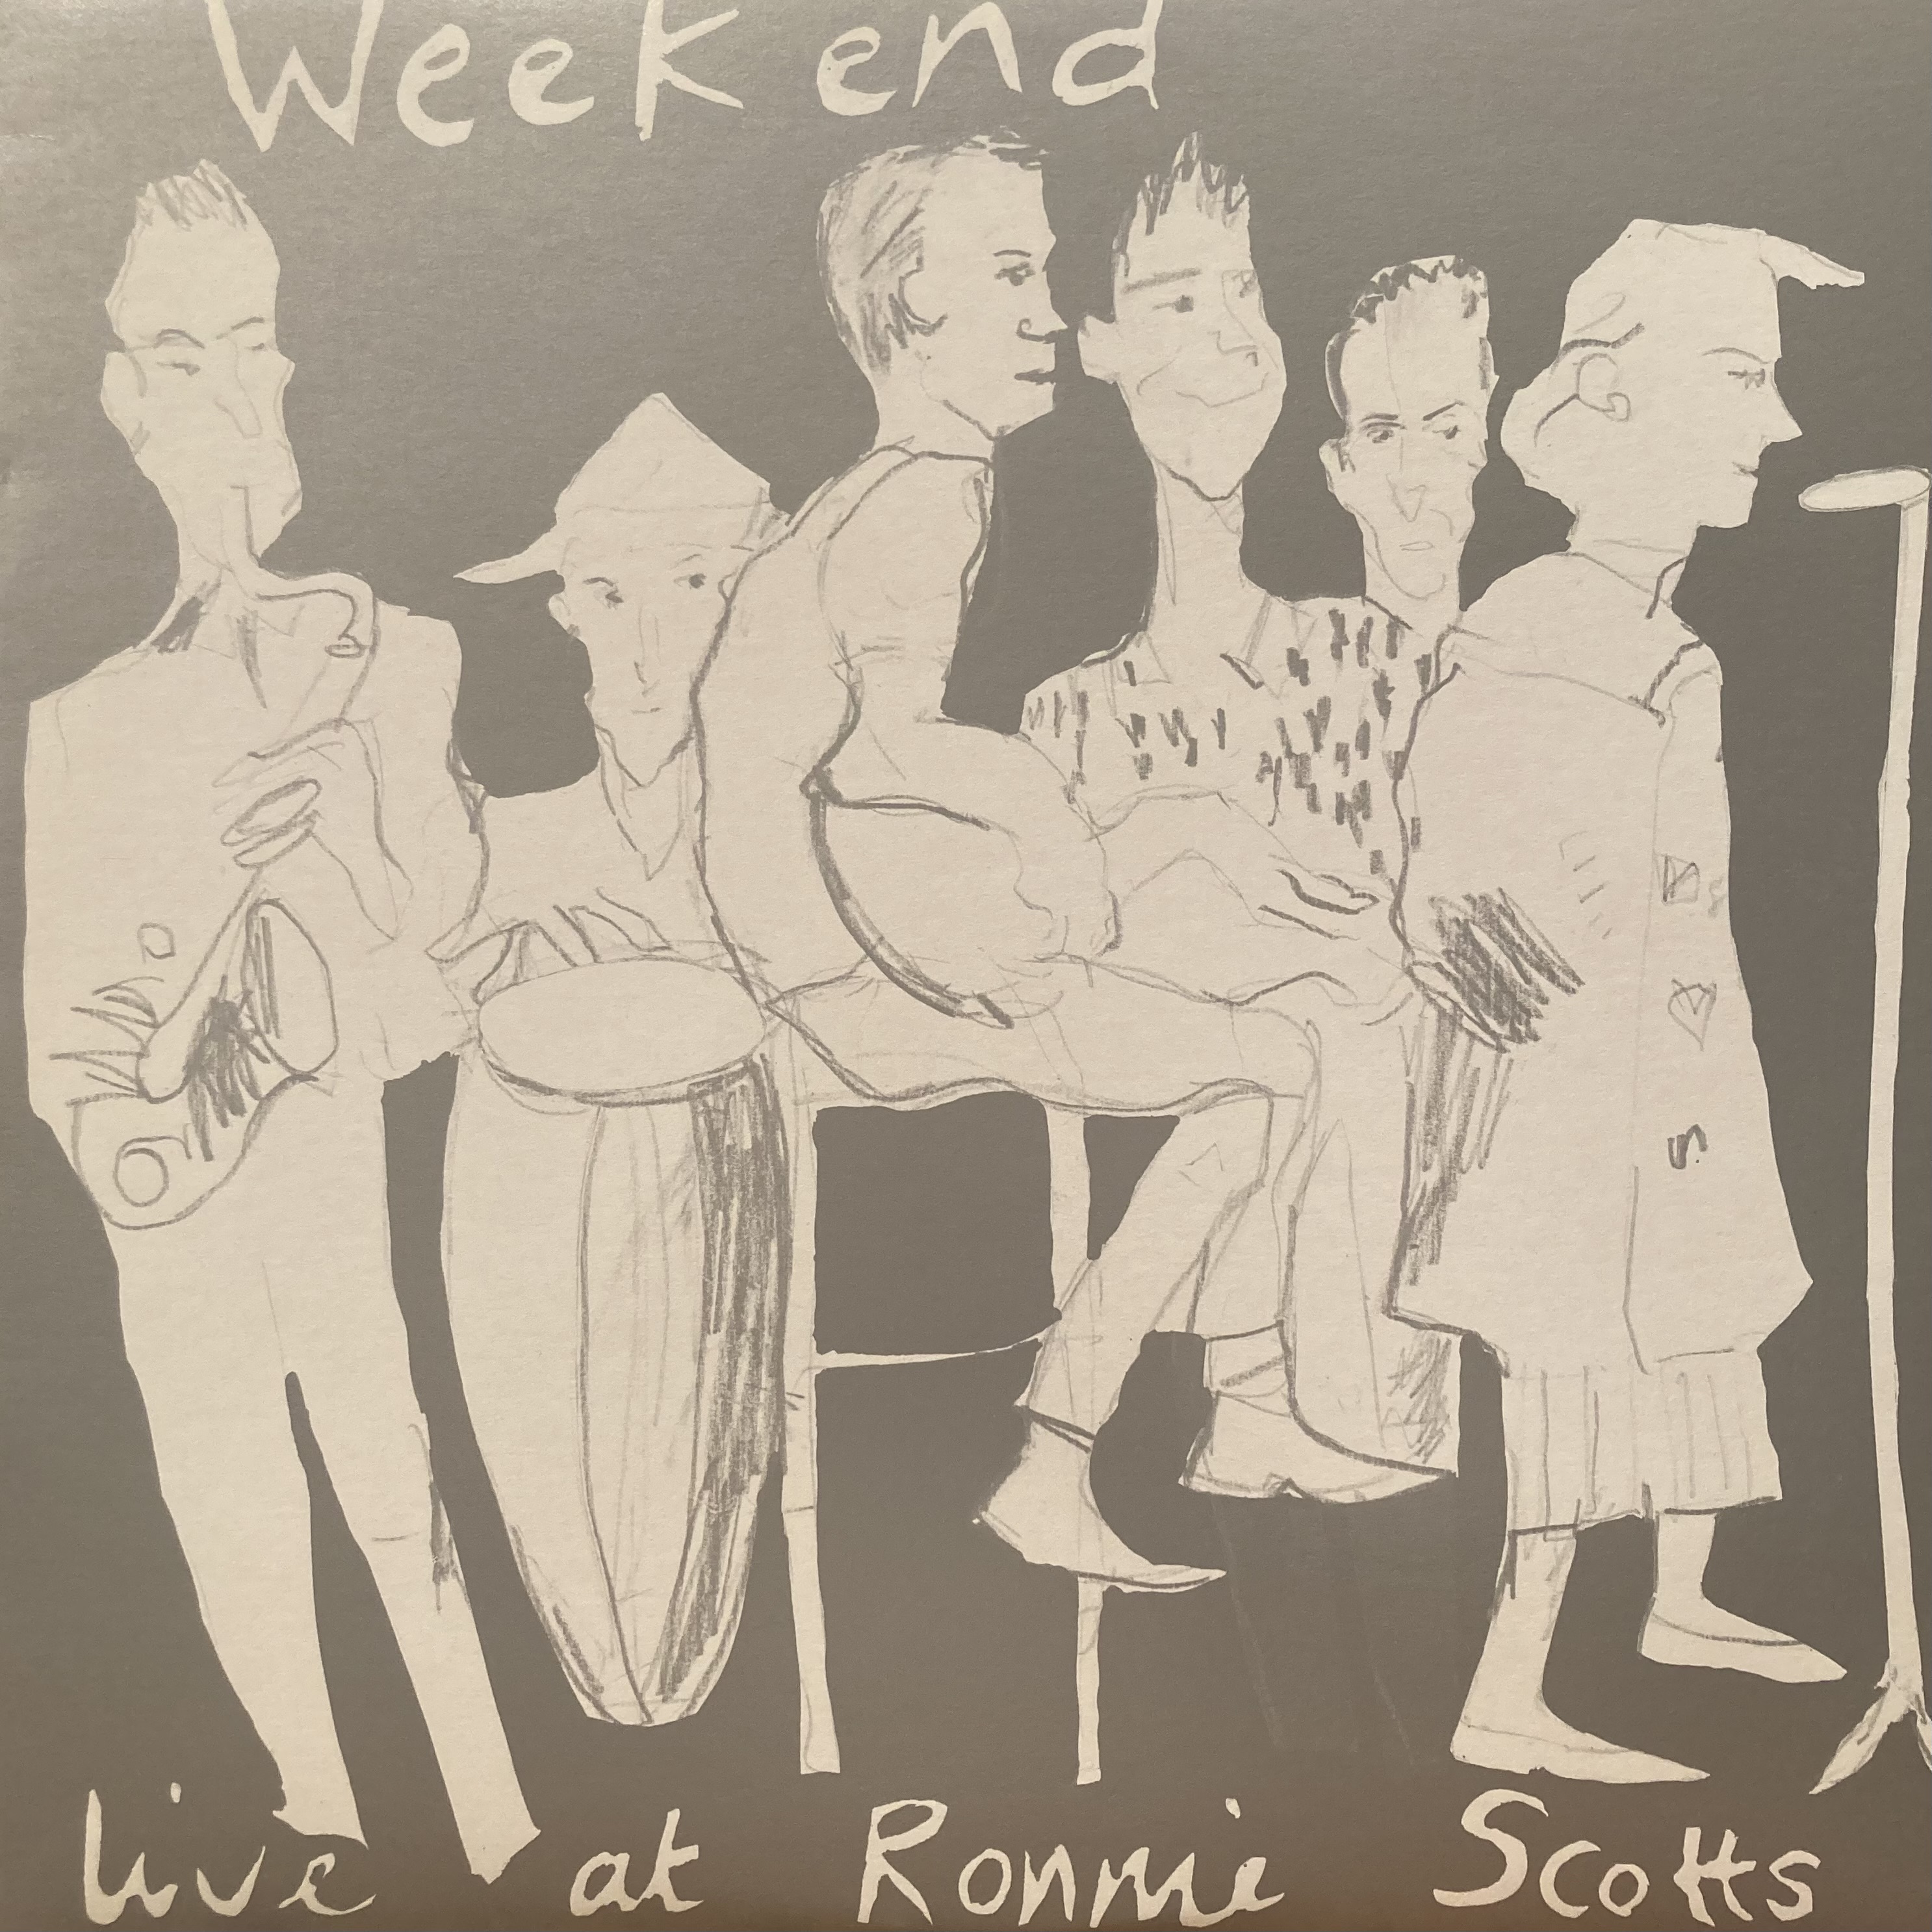 Weekend
live at Ronnie Scotts